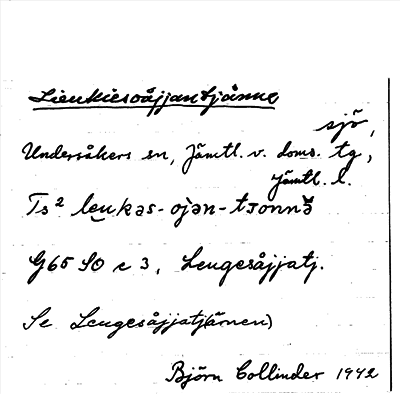 Lieukiesoåjjantjänne
sjö,
Undersåkers sn, Jämtl. v. doms. tg,
Jämtl. l.
Ts² leu̯kəs-ojən-tsonnɜ
G65 SO c 3, Leugesåjjatj.
Se Leugesåjjatj(ärnen)
Björn Collinder 1942